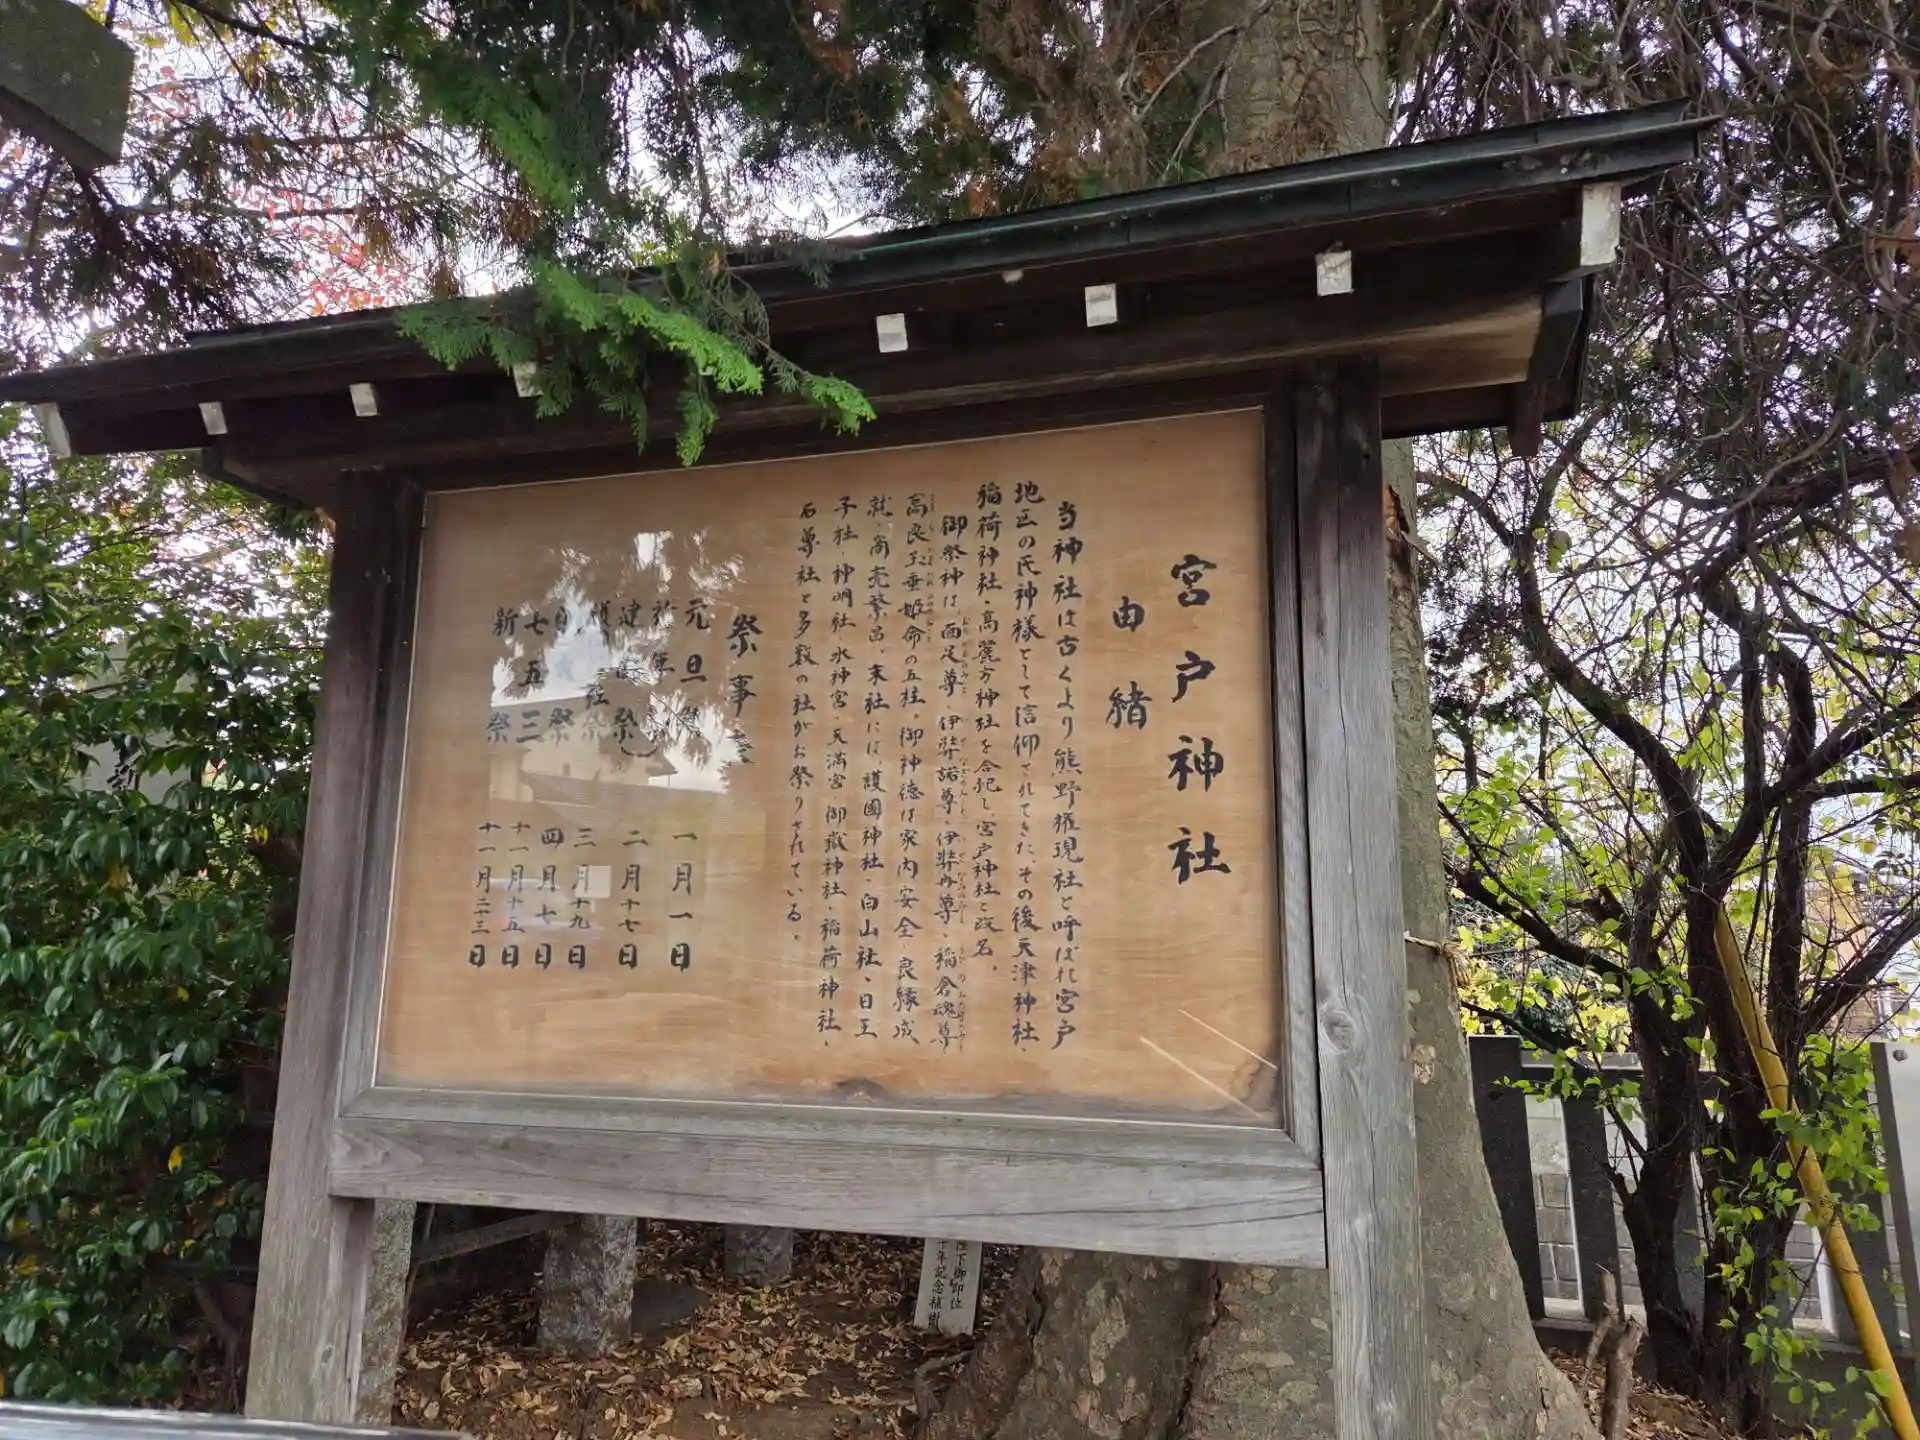 宮戸神社
由緒
当神社は古くより熊野権現社と呼ばれ宮戸
地区の氏神様として信仰されてきた、その後天津神社、
稲荷神社・高麗方神社を合祀し宮戸神社と改名。
御祭神は面足尊・伊弉諾尊・伊弉冉尊・稲倉魂尊
高良玉垂姫命の五柱。御神徳は家内安全 良縁成
就・商売繁昌、末社には、護國神社・白山社・日王
子社・神明社・水神宮・天満宮 御嶽神社・稲荷神社・
石尊社と多数の社がお祭りされている。
祭事
元旦祭 一月一日
建国祭 二月十七日
社祭 三月十九日
祭 四月七日
七五三 十一月十五日
新 祭 十一月二十三日
陛下御即位
十年記念植樹